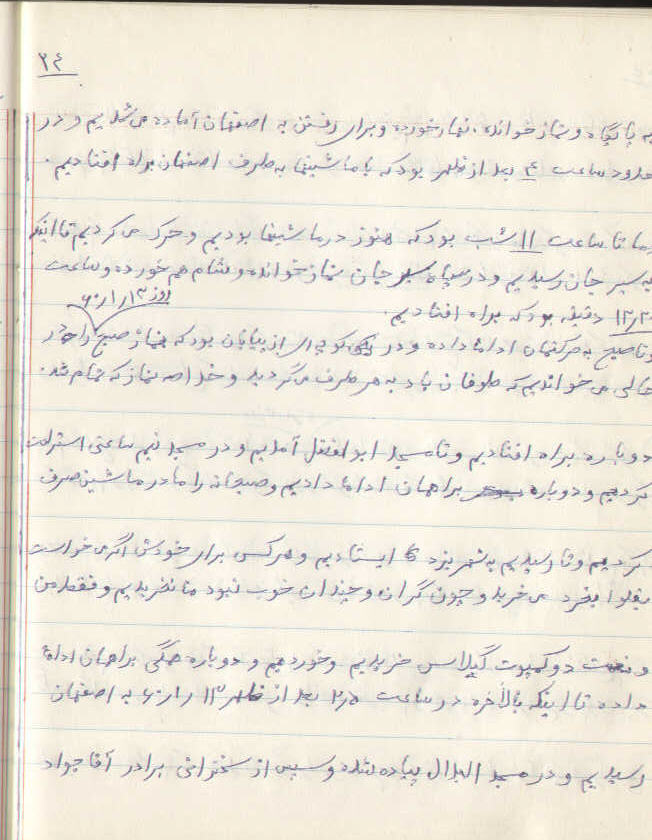 ۲۴
به پایگاه و نماز خوانده، نهار خورده و برای رفتن به اصفهان آماده می‌شدیم و در
حدود ساعت ۴ بعد از ظهر بود که با ماشینها به طرف اصفهان براه افتادیم.
ما تا ساعت ۱۱ شب بود که هنوز در ماشینها بودیم و حرکت می‌کردیم تا اینکه
به سیرجان رسیدیم و در سپاه سیرجان نماز خوانده و شام هم خورده و ساعت
روز ۱۳ ر ۱ ر ۶۰
دقیقه بود که براه افتادیم.
و تا صبح به حرکتمان ادامه داده و در از بیابان بود که نماز صبح را در
حالی می‌خواندیم که طوفان باد به هر طرف می‌گردید و خلاصه نماز که تمام شد.
دوباره براه افتادیم و تا مسجد ابوالفضل آمدیم و در مسجد نیم ساعتی استراحت
کردیم و دوباره براهمان ادامه دادیم و صبحانه را ما در ماشین صرف
کردیم و تا رسیدیم به شهر یزد که ایستادیم و هر کس برای خودش اگر می‌خواست
بخرد می‌خرید و چون گران و چندان خوب نبود ما نخریدیم و فقط من
و دو کمپوت گیلاس خریدیم و خوردیم و دوباره همگی براهمان ادامه
داده تا اینکه بالاخره در ساعت ۲٫۵ بعد از ظهر ۱۳ ر ۱ ر ۶۰ به اصفهان
رسیدیم و در مسجد پیاده شده و سپس از سخنرانی برادر آقا جواد